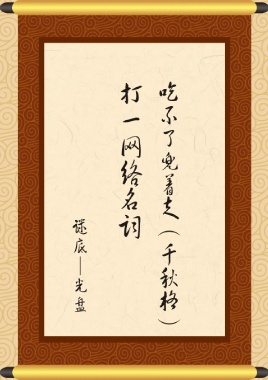 吃不了兜着走（千秋格）
打一网络名词
谜底——光盘